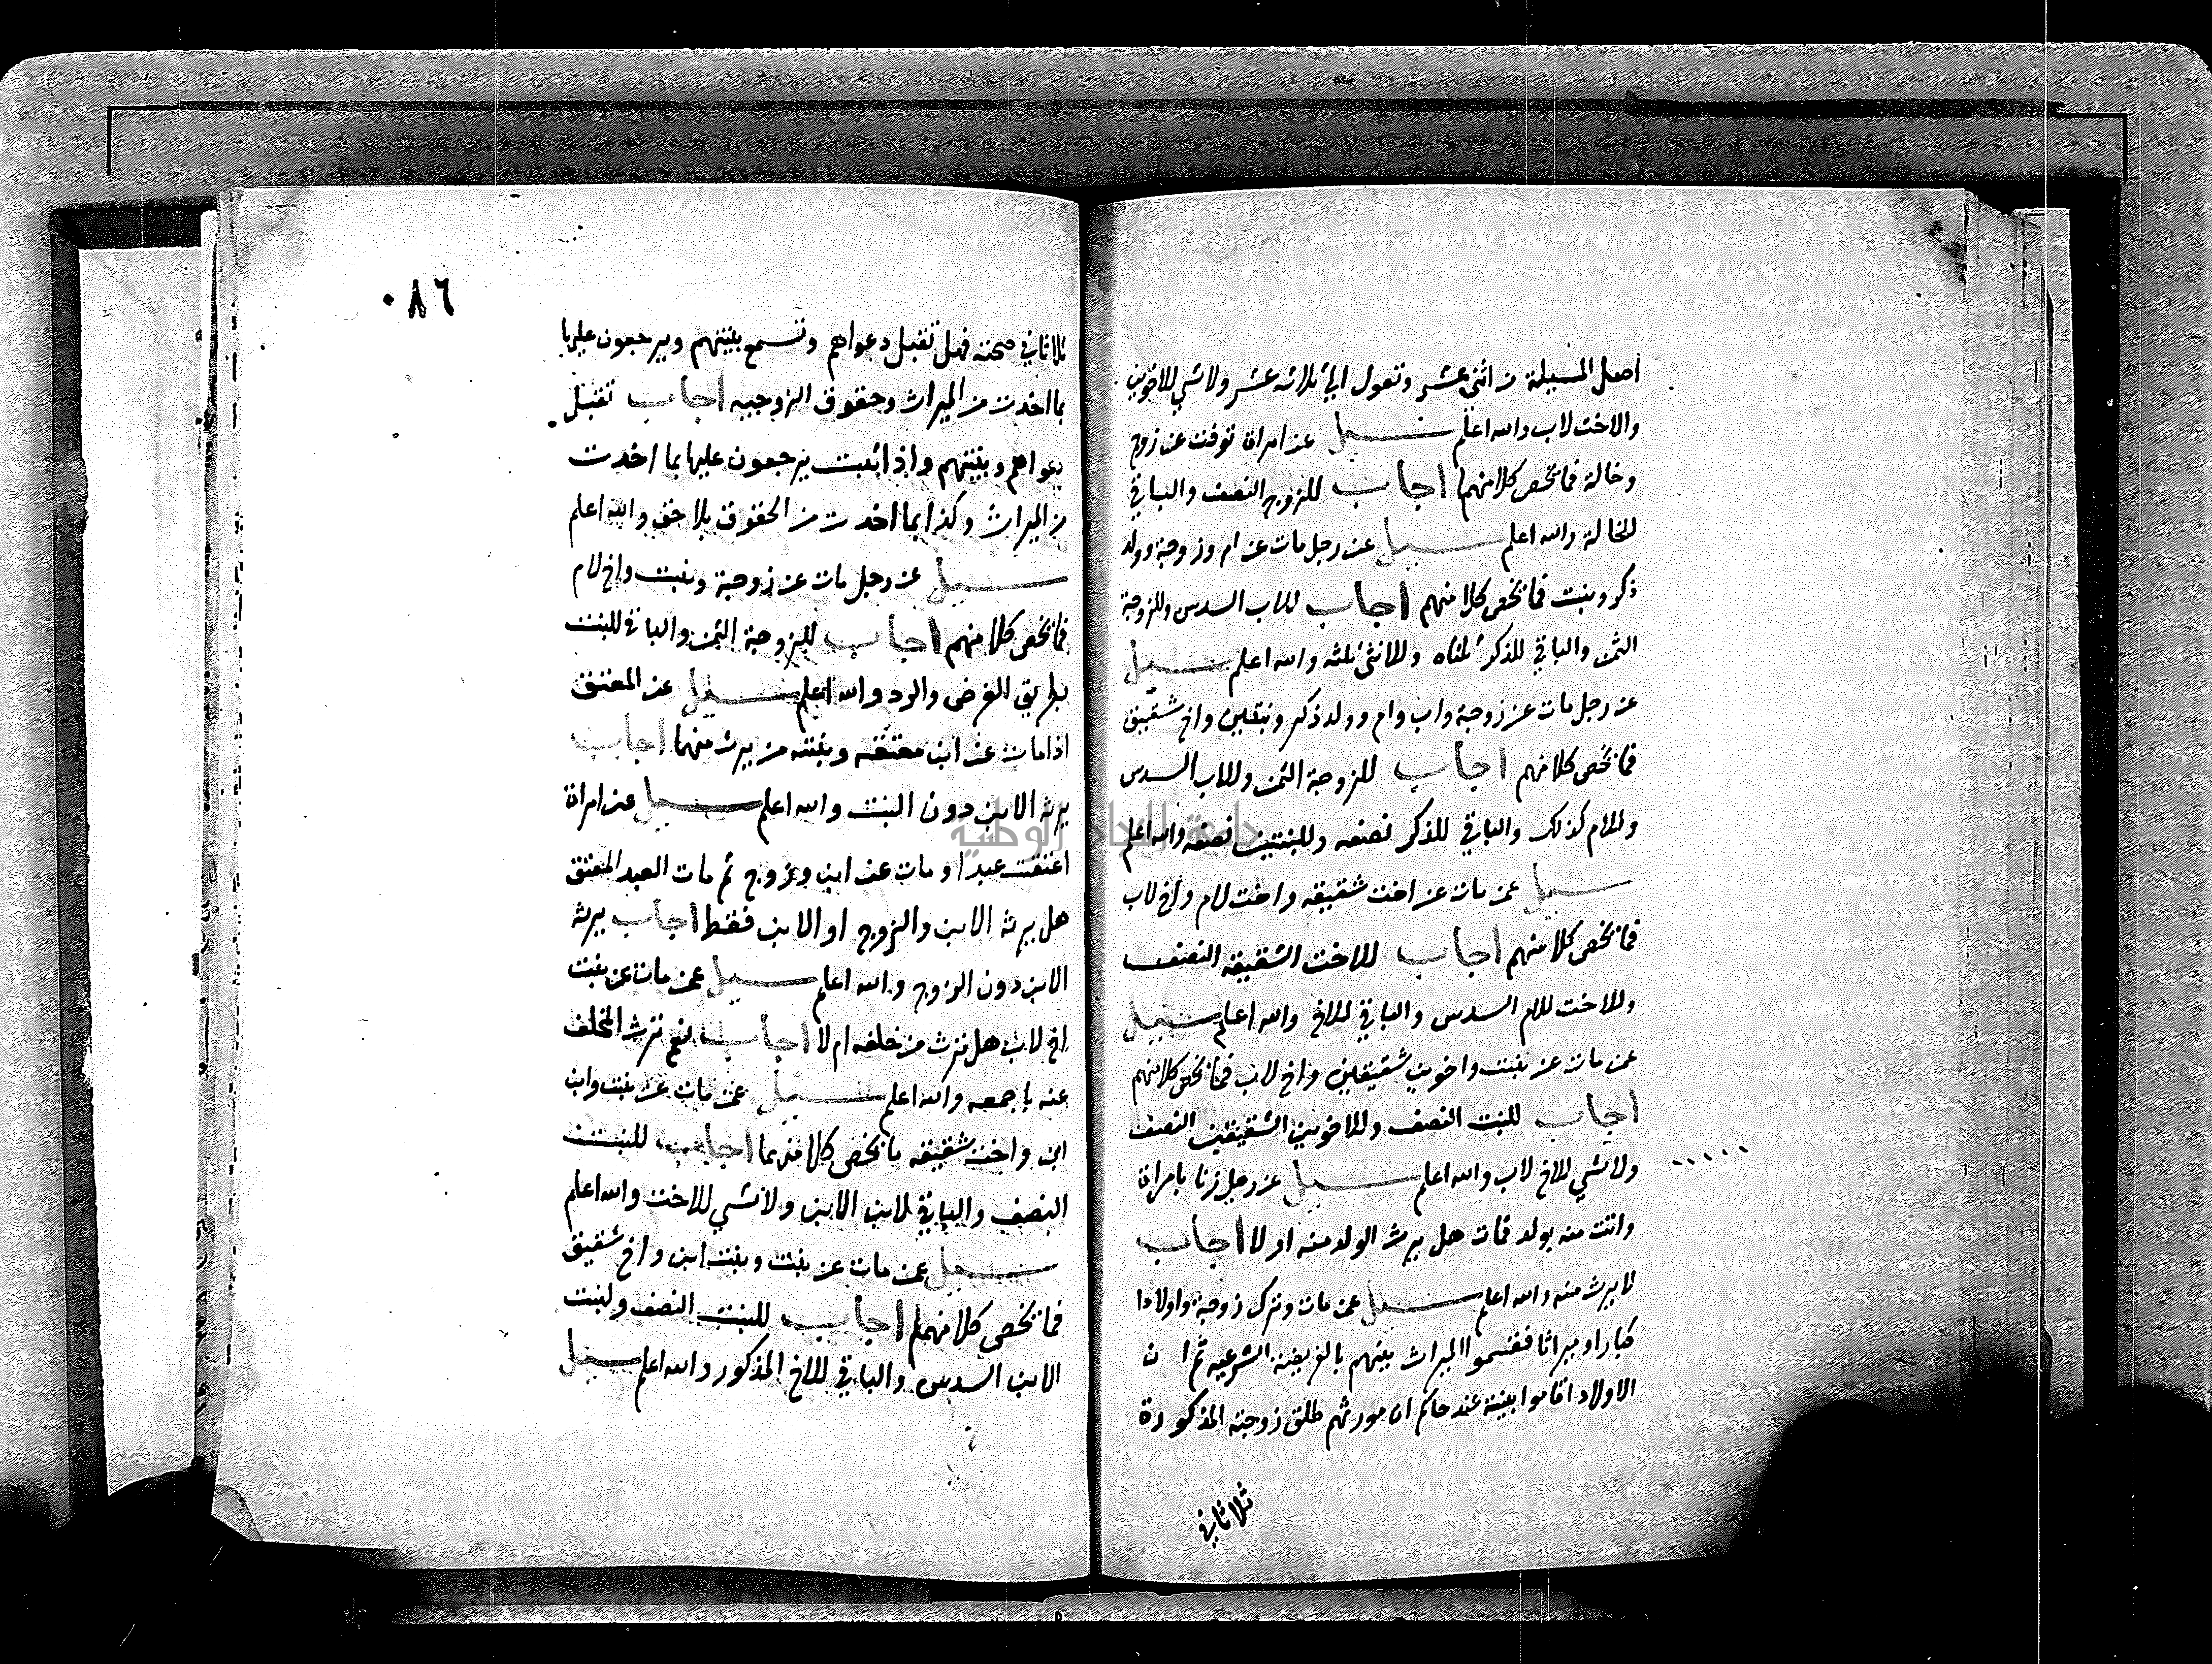 اصل المسيلة من اثنى عشر وتعول الى ثلاثه عشر ولا شي للاخوين
والاخت لاب والله اعلم سيل عن امراة توفت عن زوج
وخالة فما يخص كلا منهما اجاب للزوج النصف والباقي
للخالة والله اعلم سيل عن رجل مات عن ام وزوجة وولد
ذكر وبنت فما يخص كلا منهم اجاب للاب السدس وللزوجة
الثمن والباقي للذكر ثلثاه وللانثى ثلثه والله اعلم سيل
عن رجل مات عن زوجة واب وام وولد ذكر وبنتين واخ شقيق
فما يخص كلا منهم اجاب للزوجة الثمن وللاب السدس
وللام كذلك والباقي للذكر نصفه وللبنتين نصفه والله اعلم
سيل عمن مات عن اخت شقيقه واخت لام واخ لاب
فما يخص كلا منهم اجاب للاخت الشقيقه النصف
وللاخت للام السدس والباقي للاخ والله اعلم سيل
عمن مات عن بنت واخوين شقيقين واخ لاب فما يخص كلا منهم
اجاب للبنت النصف وللاخوين الشقيقين النصف
ولا شي للاخ لاب والله اعلم سيل عن رجل زنا بامراة
واتت منه بولد فمات هل يرث الولد منه او لا اجاب
لا يرث منه والله اعلم سيل عمن مات وترك زوجة واولادا
كبارا وميراثا فقسموا الميراث بينهم بالفريضة الشرعيه ثم ان
الاولاد اقاموا بينة عند حاكم ان مورثهم طلق زوجته المذكورة
ثلاثا في
٠٨٦
ثلاثا في صحته فهل تقبل دعواهم وتسمع بينتهم ويرجعون عليها
بما اخدت من الميراث وحقوق الزوجيه اجاب تقبل
دعواهم وبينتهم واذا اثبت يرجعون عليها بما اخدت
من الميراث وكذا بما اخدت من الحقوق بلا حق والله اعلم
سيل عن رجل مات عن زوجة وبنت واخ لام
فما يخص كلا منهم اجاب للزوجة الثمن والباقي للبنت
بطريق الفرض والرد والله اعلم سيل عن المعتق
اذا مات عن ابن معتقه وبنته من يرث منهما اجاب
يرثه الابن دون البنت والله اعلم سيل عن امراة
اعتقت عبدا ومات عن ابن وزوج ثم مات العبد المعتق
هل يرثه الابن والزوج او الابن فقط اجاب يرثه
الابن دون الزوج والله اعلم سيل عمن مات عن بنت
اخ لاب هل ترث من خلفه ام لا اجاب نعم ترث المخلف
عنه باجمعه والله اعلم سيل عمن مات عن بنت وابن
ابن واخت شقيقه ما يخص كلا منهما اجاب للبنت
النصف والباقي لابن الابن ولا شي للاخت والله اعلم
سيل عمن مات عن بنت وبنت ابن واخ شقيق
فما يخص كلا منهما اجاب للبنت النصف ولبنت
الابن السدس والباقي للاخ المذكور والله اعلم سيل